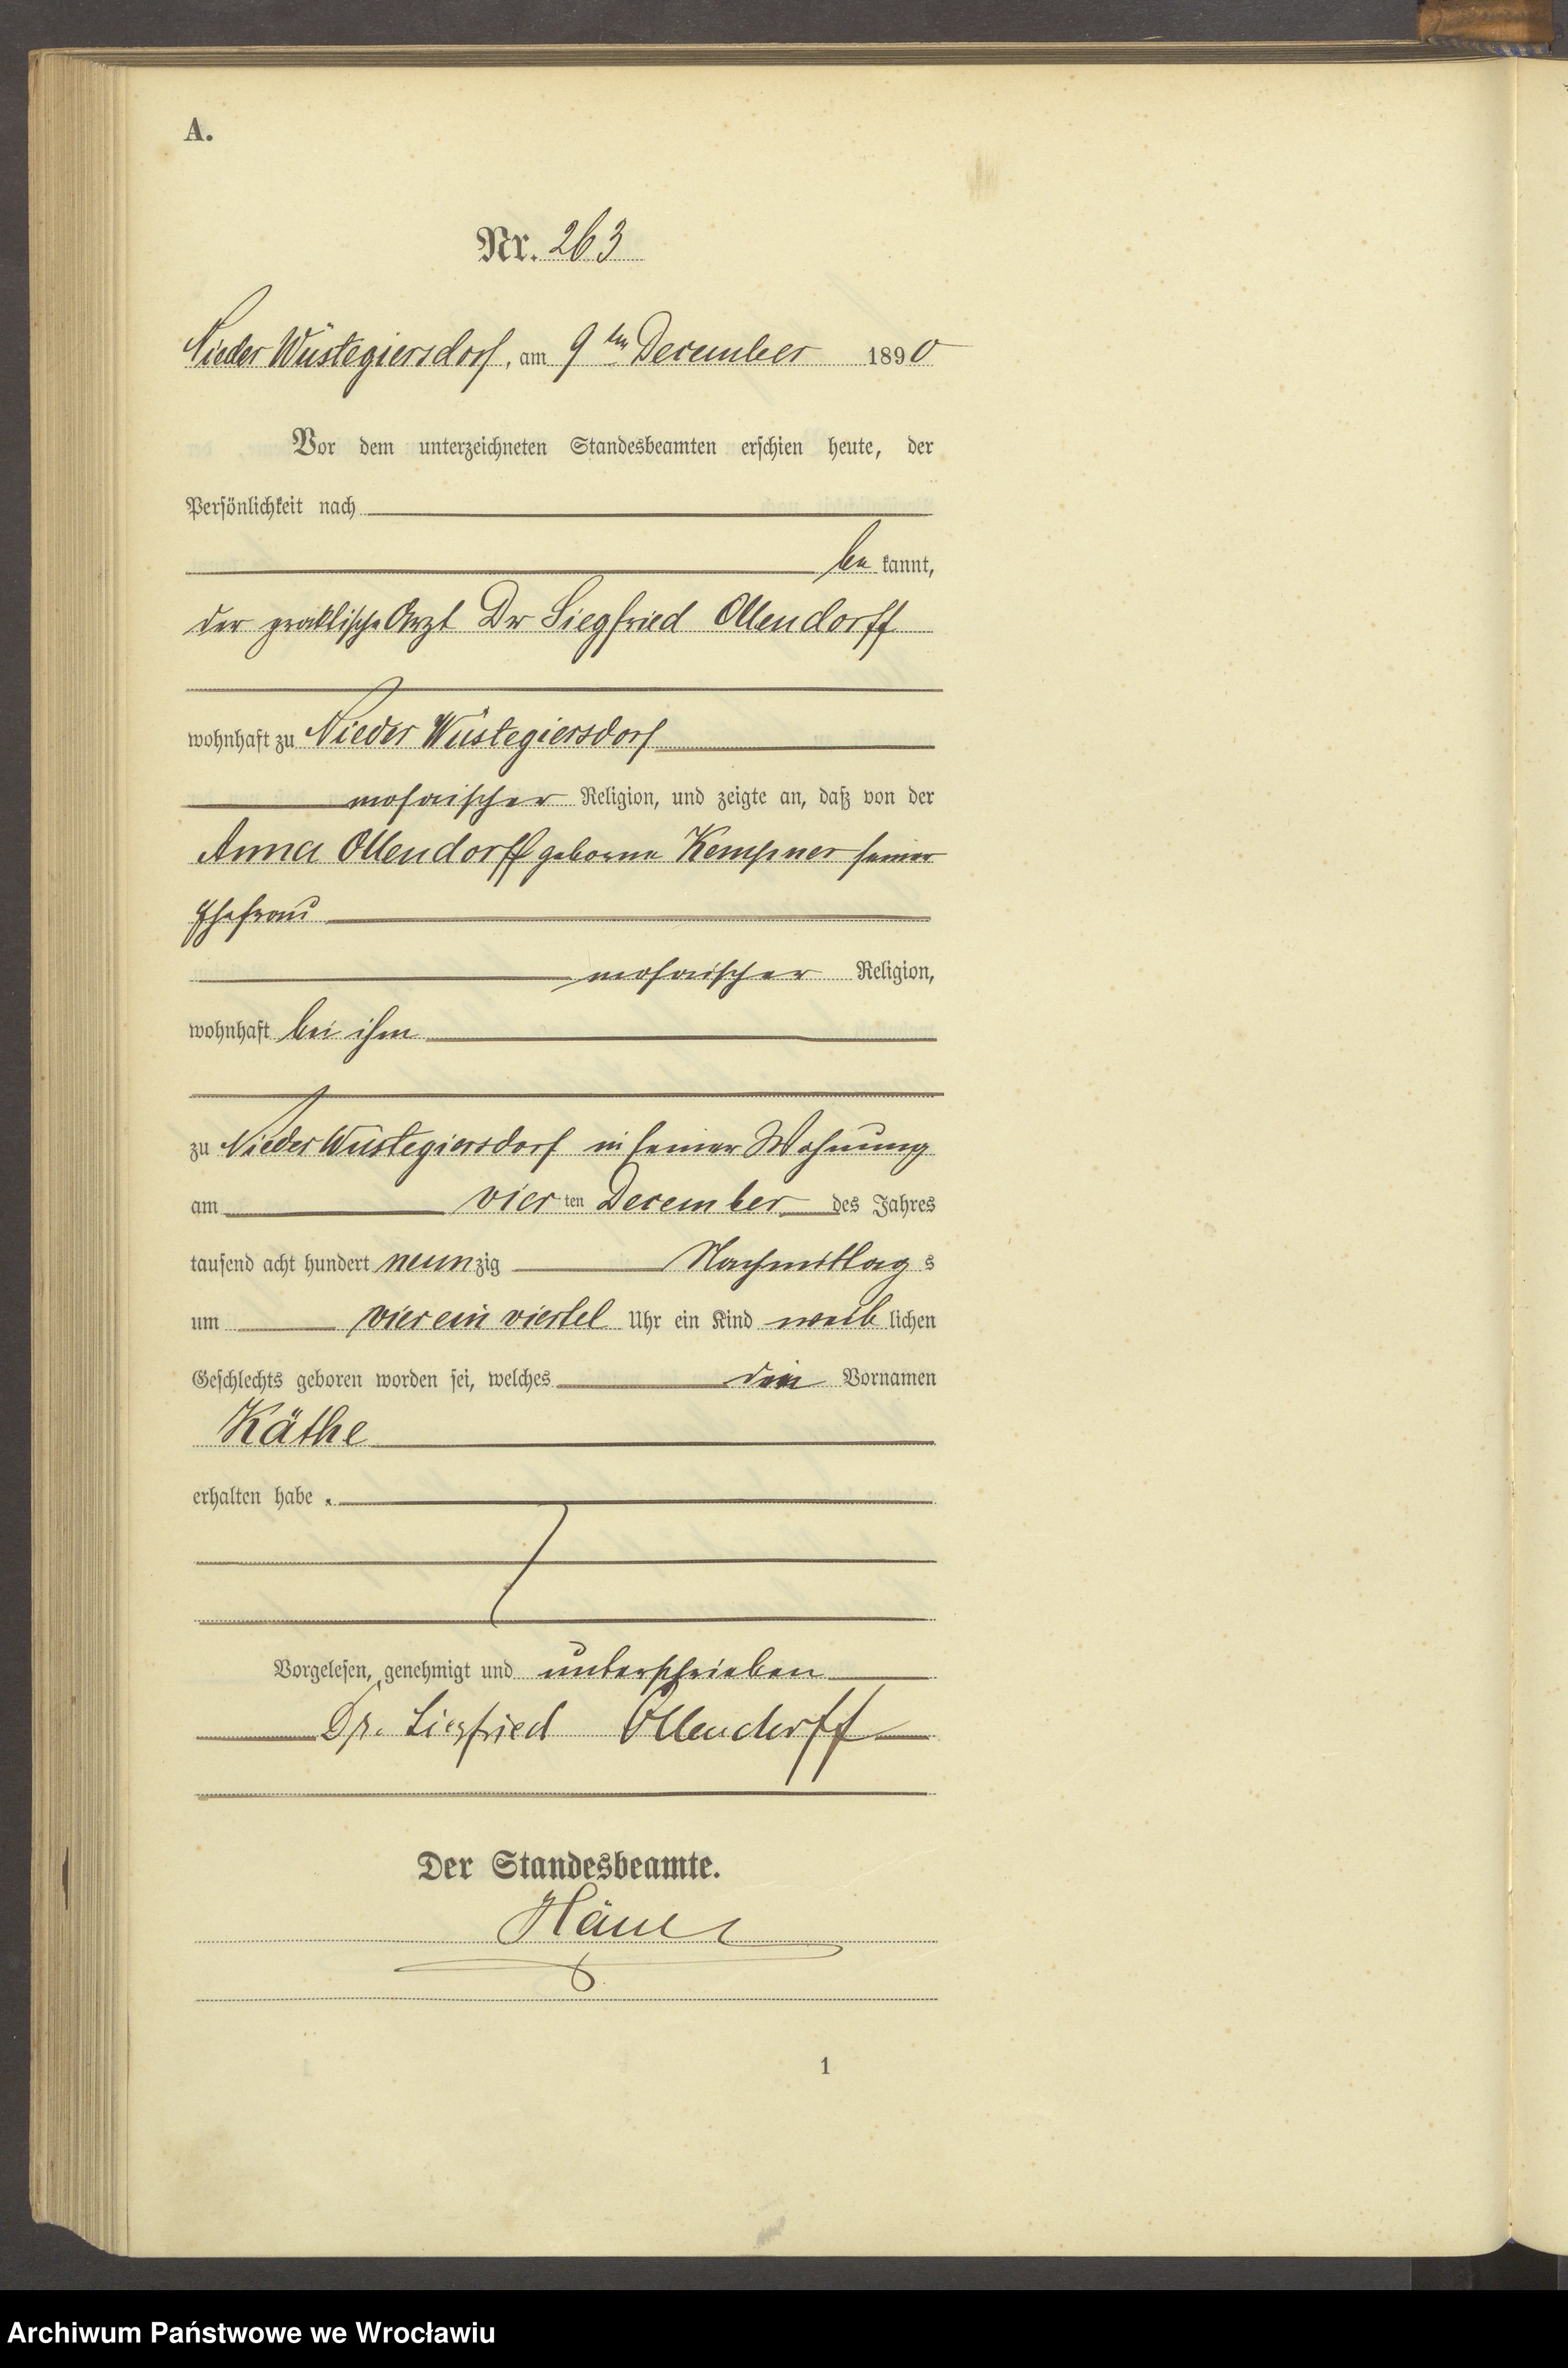 A.
Nr. 263
Nieder Wüstegiersdorf, am 9ten December 1890
Vor dem unterzeichneten Standesbeamten erschien heute, der
Persönlichkeit nach
be kannt,
der praktische Arzt Dr Siegfried Ollendorff
wohnhaft zu Nieder Wüstegiersdorf
mosaischer Religion, und zeigte an, daß von der
Anna Ollendorff geborne Kempner seiner
Ehefrau
mosaischer Religion,
wohnhaft bei ihm
zu Nieder Wüstegiersdorf in seiner Wohnung
am vier ten December des Jahres
tausend acht hundert neunzig Nachmittag s
um vier ein viertel Uhr ein Kind weib lichen
Geschlechts geboren worden sei, welches den Vornamen
Käthe
erhalten habe.
Vorgelesen, genehmigt und unterschrieben
Dr. Siegfried Ollendorff
Der Standesbeamte.
1
Archiwum Państwowe we Wrocławiu